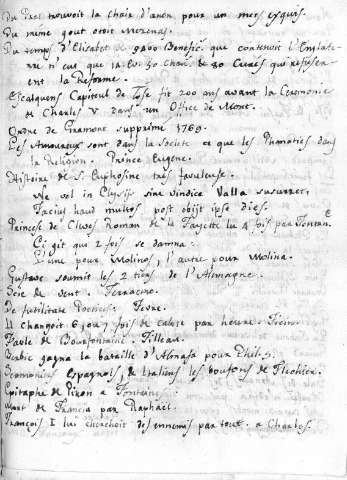 Du Prat trouvoit la chair d'anon pour un mets exquis.
Du meme gout etoit Mecenas.
Du temps d'Elisabet de 9400 Benefic. que contenoit l'Englate-
rre n'eut que 14 Ev. 50 chan. & 80 Cures qui refuser-
ent la Reforme.
Escalquens Capitoul de Tlse fit 200 ans avant la Ceremonie
de Charles V dans un Office de Mort.
Ordre de Gramont supprimé 1769.
Les Amoureux sont dans la Societe ce que les Phanatics dans
la Religion. Prince Eugene.
Histoire de S. Euphosine tres fabuleuse.
Ne vel in Elysiis sine vindice Valla susurret,
Facius haud multos post obijt ipse dies.
Princese de Cleves Roman de la Fayette lu 4 fois par Fonten.
Ci git que 2 fois se damna:
L'une pour Molinos, l'autre pour Molina.
Gustave soumit les 2 tiers de l'Allemagne.
Scie de vent.
De futilitate Poetices. Fevre.
Il changoit 6, ou 7 fois de calote par heure.
Fable de Bourfontaine. Filleau.
Berbic gagna la bataille d'Almasa pour Phil. 5.
Espagnols, & Italiens les boufons de Flechier.
Epitaphe de Piron a
de Francia par Raphael.
François I lui cherchoit des ennemis par tout. a Charles.